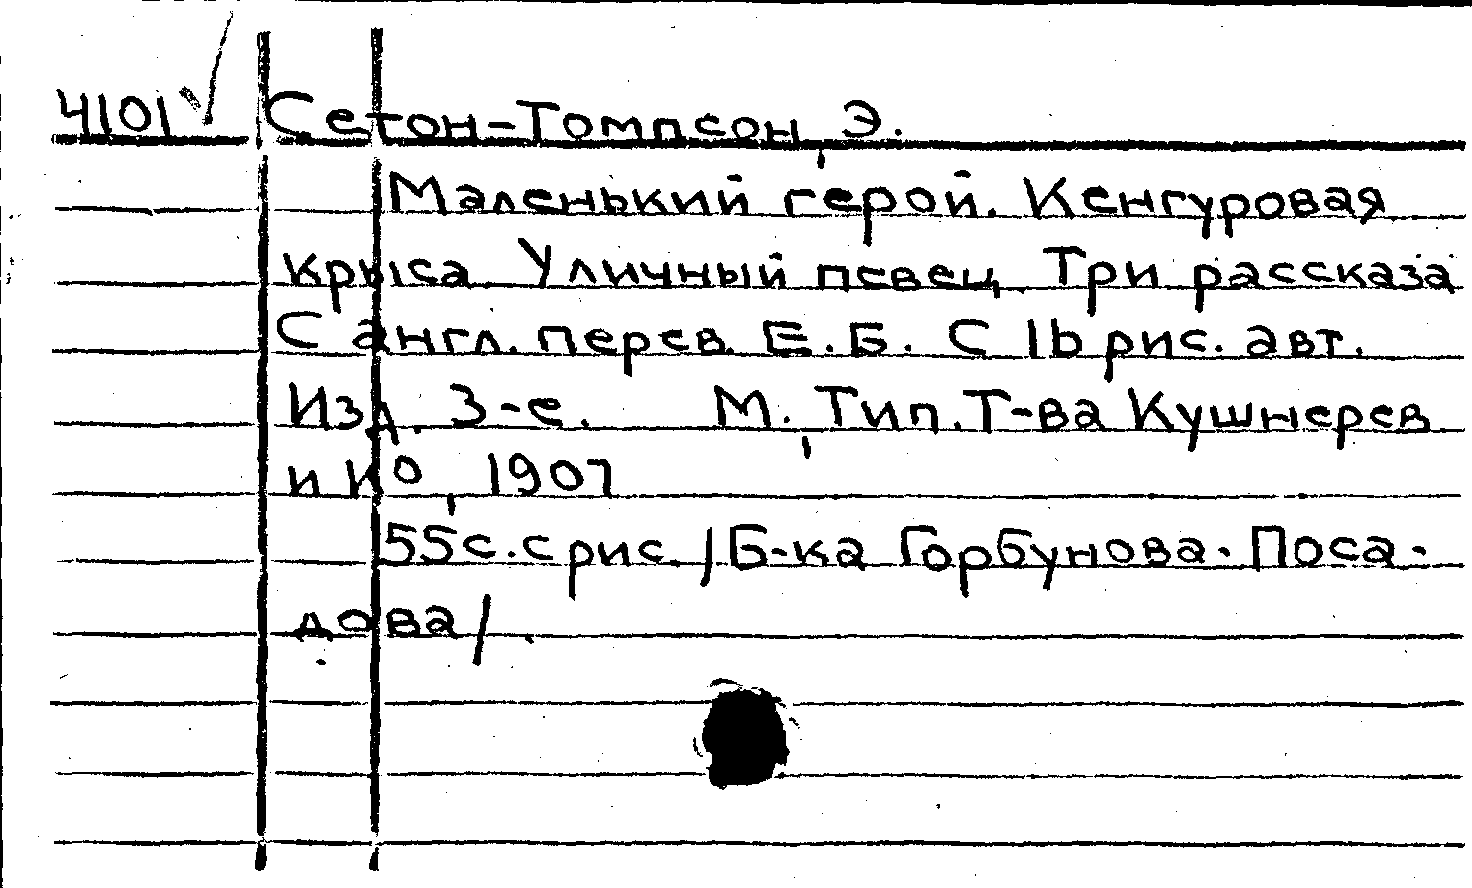 4101 Сетон-Томпсон, Э.
Маленький герой. Кенгуровая
крыса Уличный певец. Три рассказа
С англ. перев. Е.Б. С 16 рис. авт.
Изд. 3-е. М., Тип. Т-ва Кушнерев
и Ко, 1907
55с. с рис. /Б-ка Горбунова-Поса-
дова/.